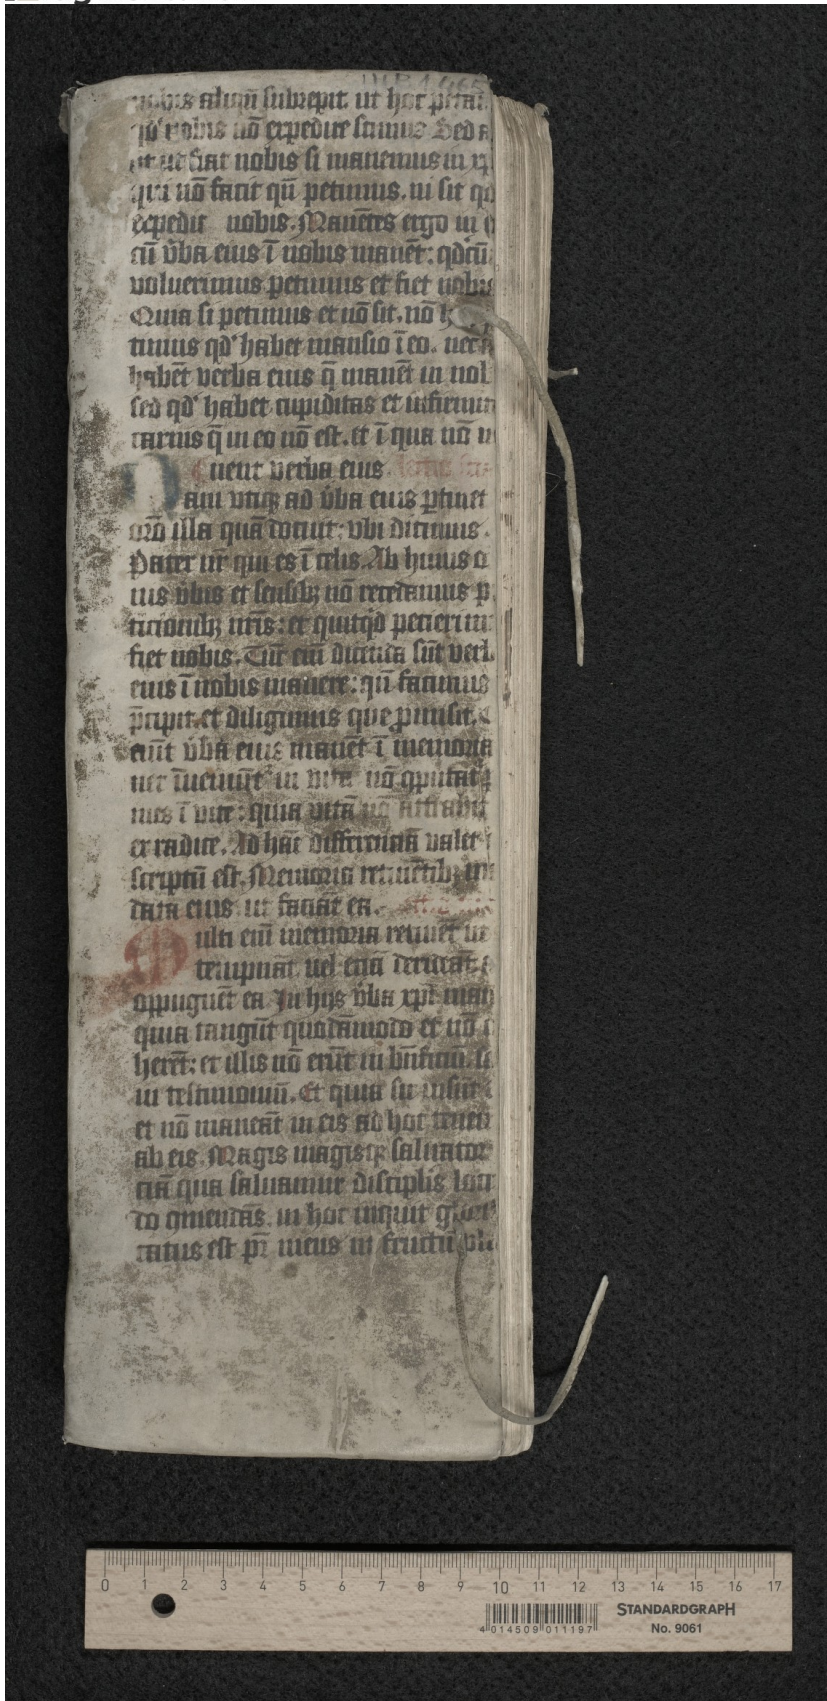 nobis aliqn̄ subrepit ut hoc petam
qd' nobis nō expedire scimus Sed
ut nō fiat nobis si manemus in xp̄
qui nō facit qn̄ petimus. ni sit qd
expedit nobis. Manētes ergo in
cū v̄ba eius ī nobis manēt: qdcū
voluerimus petimus et fiet nobis
Quia si petimus et nō fit. nō
timus qd' habet mansio ī eo. nec
habēt verba eius q̄ manēt in nob
sed qd' habet cupiditas et infirmi
carnis q̄ in eo nō est. et ī qua nō
nent verba eius
Nam utiq; ad v̄ba eius ptinet
orō illa quā docuit: vbi dicimus.
Pater nr̄ qui es ī celis. Ab huius
ius v̄bis et sensib; nō recedamus p
ticionib; nr̄is: et quicqd petierim
fiet nobis. Tūc em̄ dicēda sūt verb
eius ī nobis manere: qn̄ facimus
p̄cipit. et diligimus que promisit.
aūt v̄ba eius manēt ī memoria
nec īueniūt in vita nō qputat
mes ī vite: quia vitā nō attrahit
ex radice. Ad hāc differentiā valet
scriptū est. Memoria retinētib;
data eius. ut faciāt ea.
Multi em̄ memoria retinēt ut
tempnāt. uel eciā derideāt
oppugnēt ea In hiis v̄ba xpi man
quia tangūt quodāmodo et nō
herēt: et illis nō erūt in bn̄ficiū.
in testimoniū. Et quia sic insūt
et nō maneāt in eis ad hoc tenen
ab eis. Magis magisq; saluator
ciā qua saluamur disciplis
do qmendās. in hoc inquit
catus est pr̄ meus ut fructū
0 1 2 3 4 5 6 7 8 9 10 11 12 13 14 15 16 17
STANDARDGRAPH
No. 9061
4 014509 011197